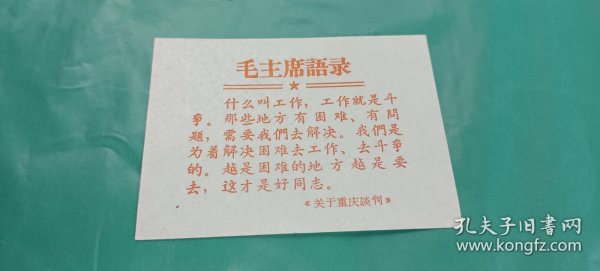 毛主席語录
什么叫工作，工作就是斗
爭。那些地方有困难、有問
題，需要我們去解决。我們是
为着解决困难去工作、去斗爭
的。越是困难的地方越是要
去，这才是好同志。
《关于重庆談判》
孔夫子旧書网
www.kongfz.com